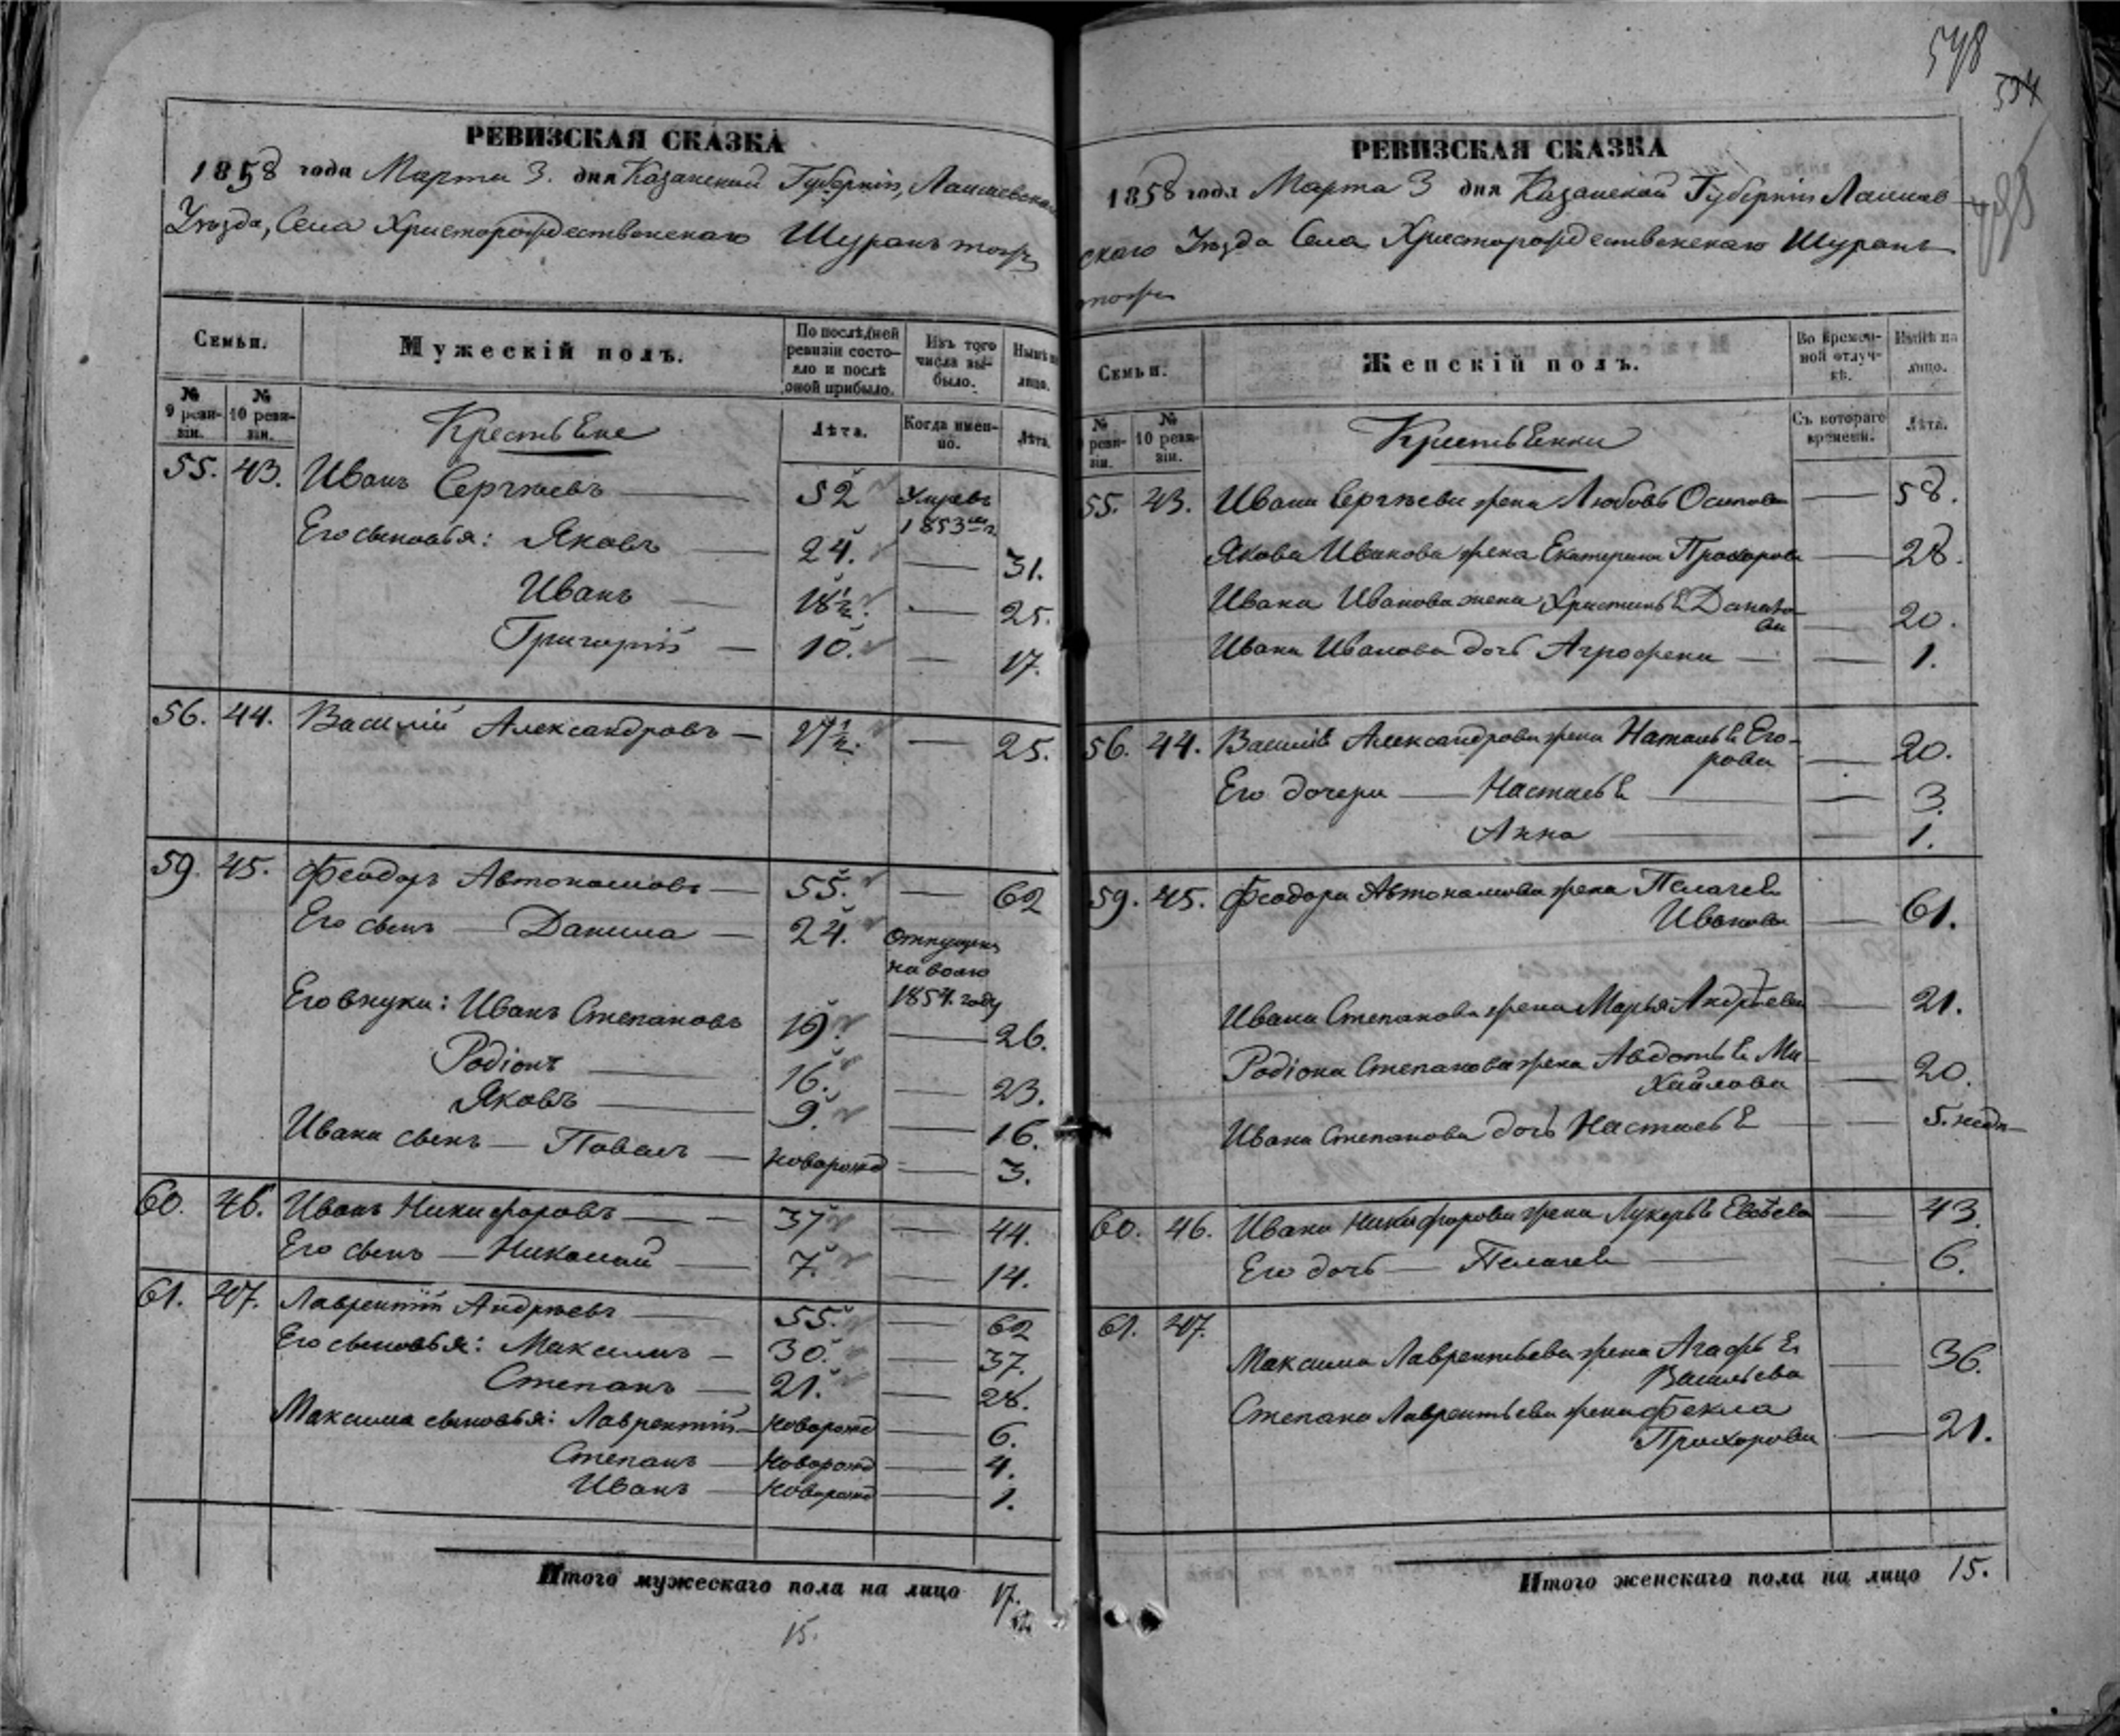 РЕВИЗСКАЯ СКАЗКА
1858 года Марта 3. дня Казанской Губернiи, Лаишевскаго
Уѣзда, Села Христорождественскаго Шуранъ тожъ
Семьи.
Мужескiй полъ.
По послѣдней ревизiи состояло и послѣ оной прибыло.
Изъ того числа выбыло.
Нынѣ на лицо.
№ 9 ревизiи.
№ 10 ревизiи.
Крестьяне
Лѣта.
Когда именно.
Лѣта.
55. 43. Иванъ Сергѣевъ 52 Умревъ 1853 г.
Его сыновья: Яковъ 24. 31.
Иванъ 18½. 25.
Григорiй 10. 17.
56. 44. Василiй Александровъ 17½. 25.
59. 45. Феодоръ Автономовъ 55. 62
Его сынъ Данила 24. Отпущенъ
на волю
1854. году
Его внуки: Иванъ Степановъ 19. 26.
Родiонъ 16. 23.
Яковъ 9. 16.
Ивана сынъ Павелъ новорожд 3.
60. 46. Иванъ Никифоровъ 37 44.
Его сынъ Николай 7. 14.
61. 47. Лаврентiй Андрѣевъ 55. 62
Его сыновья: Максимъ 30. 37.
Степанъ 21. 28.
Максима сыновья: Лаврентiй новорожд 6.
Степанъ новорожд 4.
Иванъ новорожд 1.
Итого мужескаго пола на лицо 17.
15.
548
534
РЕВИЗСКАЯ СКАЗКА
1858 года Марта 3 дня Казанской Губернiи Лаишев
скаго Уѣзда Села Христорождественскаго Шуранъ
тожъ
Семьи.
Женскiй полъ.
Во временной отлучкѣ.
Нынѣ на лицо.
№ 9 ревизiи.
№ 10 ревизiи.
Крестьянки
Съ котораго времени.
Лѣта.
55. 43. Ивана Сергѣева жена Любовь Осипова 58.
Якова Иванова жена Екатерина Прохорова 28.
Ивана Иванова жена Христинья 20.
Ивана Иванова дочь Агрофена 1.
56. 44. Василья Александрова жена Наталья Его-
рова 20.
Его дочери Настасья 3.
Анна 1.
59. 45. Феодора Автономова жена Пелагея
Иванова 61.
Ивана Степанова жена Марья Андрѣева 21.
Родiона Степанова жена Авдотья Ми-
хайлова 20.
Ивана Степанова дочь Настасья 5. недѣ
60. 46. Ивана Никифорова жена Лукерья 43.
Его дочь Пелагея 6.
61. 47.
Максима Лаврентьева жена Агафья
Васильева 36.
Степана Лаврентьева жена Фекла
Прохорова 21.
Итого женскаго пола на лицо 15.